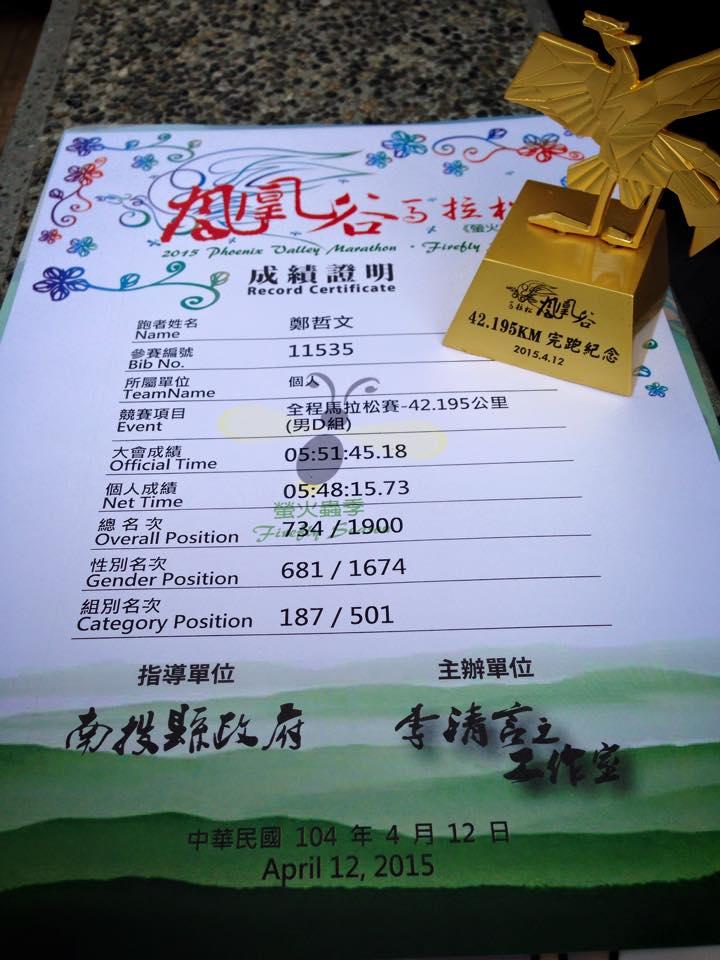 鳳凰谷馬拉松
《螢火
2015 Phoenix Valley Marathon · Firefly
成績證明
Record Certificate
跑者姓名 鄭哲文
Name
參賽編號 11535
Bib No.
所屬單位 個人
TeamName
競賽項目 全程馬拉松賽-42.195公里
Event (男D組)
大會成績 05:51:45.18
Official Time
個人成績 05:48:15.73
Net Time
螢火蟲季
總名次 734 / 1900
Overall Position
性別名次 681 / 1674
Gender Position
組別名次 187 / 501
Category Position
指導單位 主辦單位
南投縣政府 李清言之
工作室
中華民國 104 年 4 月 12 日
April 12, 2015
馬拉松 鳳凰谷
42.195KM 完跑紀念
2015.4.12